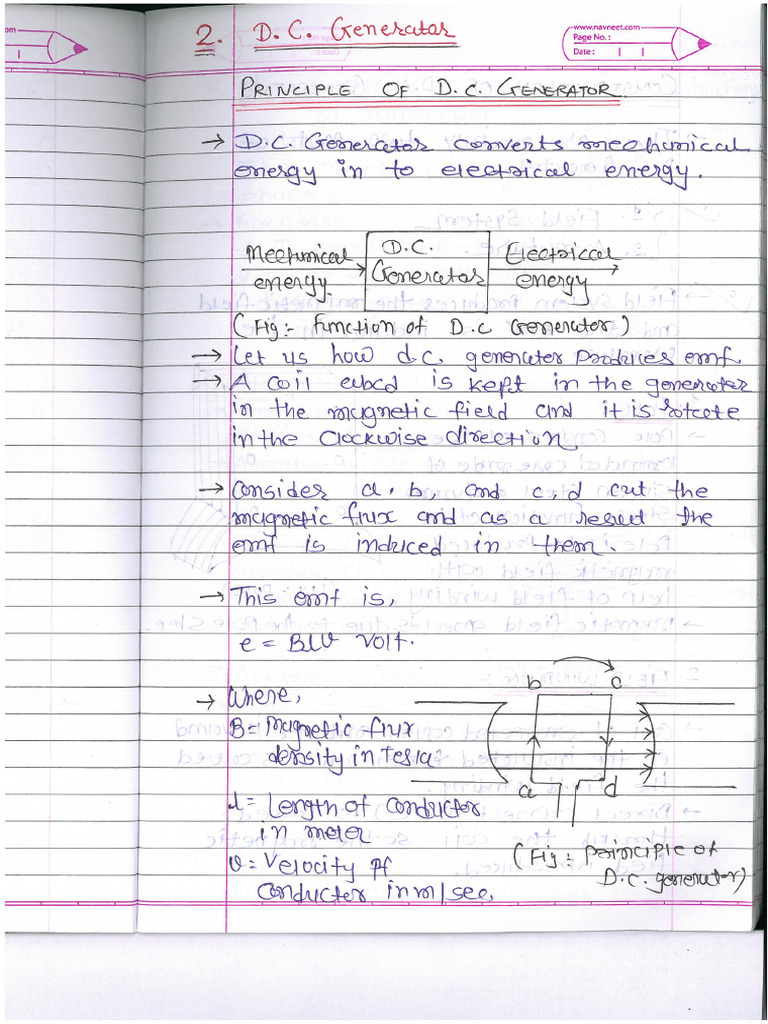 om
www.navneet.com
Page No. :
Date :
2. D.C. Generator
PRINCIPLE OF D.C. GENERATOR
→ D.C. Generator converts mechanical
energy in to electrical energy.
Mechanical energy
D.C. Generator
Electrical energy
(Fig :- function of D.C Generator)
→ Let us how d.c. generator produces emf.
→ A coil abcd is kept in the generator
in the magnetic field and it is rotate
in the clockwise direction
→ Consider a, b, and c, d cut the
magnetic flux and as a result the
emf is induced in them.
→ This emf is,
e = Blv volt.
→ Where,
B = Magnetic flux
density in Tesla
l = Length of conductor
in meter
v = Velocity of
conductor in m/sec,
b
c
a
d
(Fig :- principle of
D.C. generator)